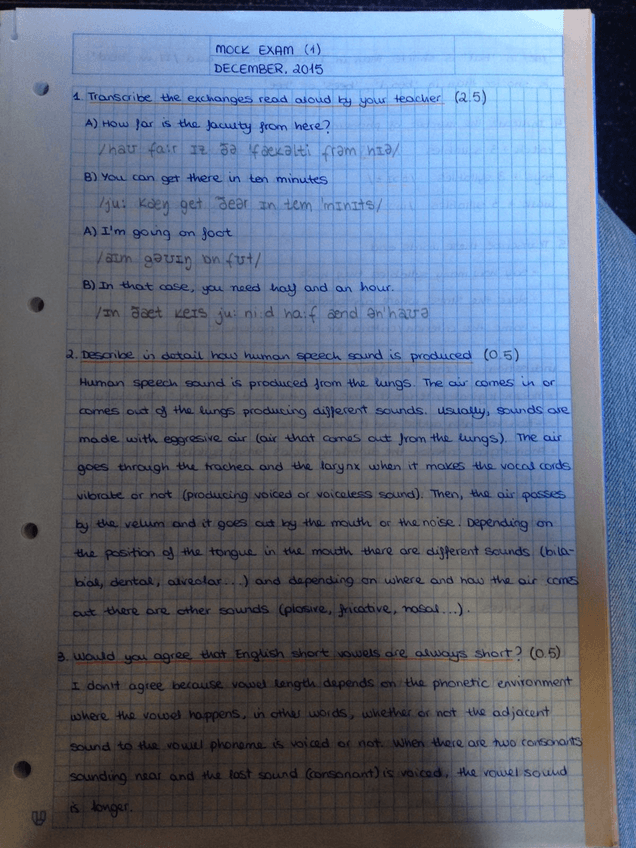 MOCK EXAM (1)
DECEMBER, 2015
1. Transcribe the exchanges read aloud by your teacher (2.5)
A) How far is the faculty from here?
/haʊ fa:r ɪz ðə ˈfækəlti frəm hɪə/
B) You can get there in ten minutes
/ju: kæŋ get ðeər ɪn tem ˈmɪnɪts/
A) I'm going on foot
/aɪm gəʊɪŋ ɒn fʊt/
B) In that case, you need half and an hour.
/ɪn ðæt keɪs ju: ni:d ha:f ænd ənˈhaʊə
2. Describe in detail how human speech sound is produced (0.5)
Human speech sound is produced from the lungs. The air comes in or
comes out of the lungs producing different sounds. Usually, sounds are
made with eggresive air (air that comes out from the lungs). The air
goes through the trachea and the larynx when it makes the vocal cords
vibrate or not (producing voiced or voiceless sound). Then, the air passes
by the velum and it goes out by the mouth or the noise. Depending on
the position of the tongue in the mouth there are different sounds (bila-
bial, dental, alveolar...) and depending on where and how the air comes
out there are other sounds (plosive, fricative, nasal...).
3. Would you agree that English short vowels are always short? (0.5)
I don't agree because vowel length depends on the phonetic environment
where the vowel happens, in other words, whether or not the adjacent
sound to the vowel phoneme is voiced or not. When there are two consonants
sounding near and the last sound (consonant) is voiced, the vowel sound
is longer.